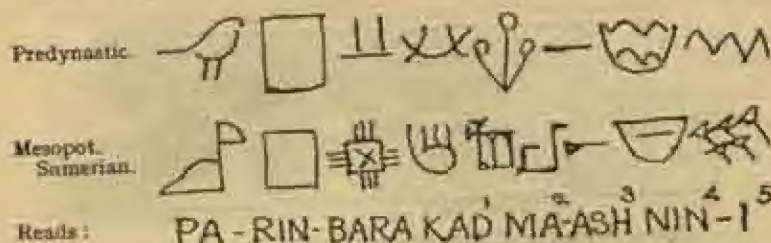 Predynastic.
Mesopot.
Sumerian.
Reads: PA - RIN - BARA KAD¹ MA-²ASH³ NIN⁴ - I⁵